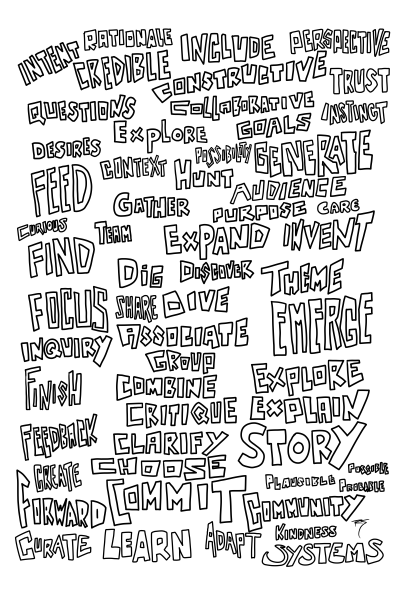 INTENT RATIONALE INCLUDE PERSPECTIVE
CREDIBLE CONSTRUCTIVE TRUST
QUESTIONS COLLABORATIVE INSTINCT
DESIRES EXPLORE GOALS
CONTEXT POSSIBILITY GENERATE
FEED HUNT AUDIENCE
GATHER PURPOSE CARE
CURIOUS TEAM EXPAND INVENT
FIND DIG DISCOVER THEME
FOCUS SHARE DIVE EMERGE
INQUIRY ASSOCIATE
GROUP
FINISH COMBINE EXPLORE
CRITIQUE EXPLAIN
FEEDBACK CLARIFY STORY
CREATE CHOOSE PLAUSIBLE POSSIBLE
PROBABLE
FORWARD COMMIT COMMUNITY
CURATE LEARN ADAPT KINDNESS
SYSTEMS